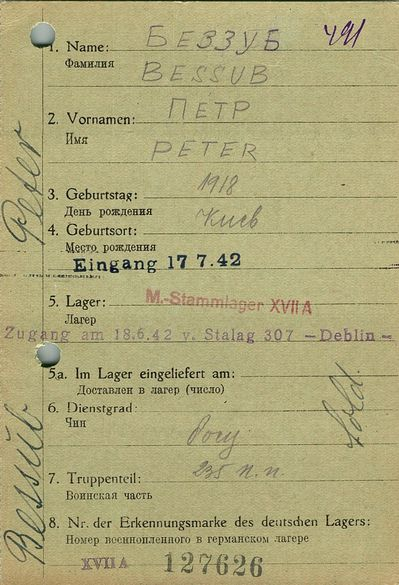 491
1. Name: БЕЗЗУБ
Фамилия BESSUB
2. Vornamen: ПЕТР
Имя PETER
3. Geburtstag: 1918
День рождения
4. Geburtsort: Киев
Место рождения
Eingang 17 7.42
5. Lager: M.-Stammlager XVII A
Лагерь
Zugang am 18.6.42 v. Stalag 307 —Deblin—
5a. Im Lager eingeliefert am:
Доставлен в лагерь (число)
6. Dienstgrad: Sold.
Чин
235 п.п.
7. Truppenteil:
Воинская часть
8. Nr. der Erkennungsmarke des deutschen Lagers:
Номер военнопленного в германском лагере
XVII A 127626
Bessub Peter